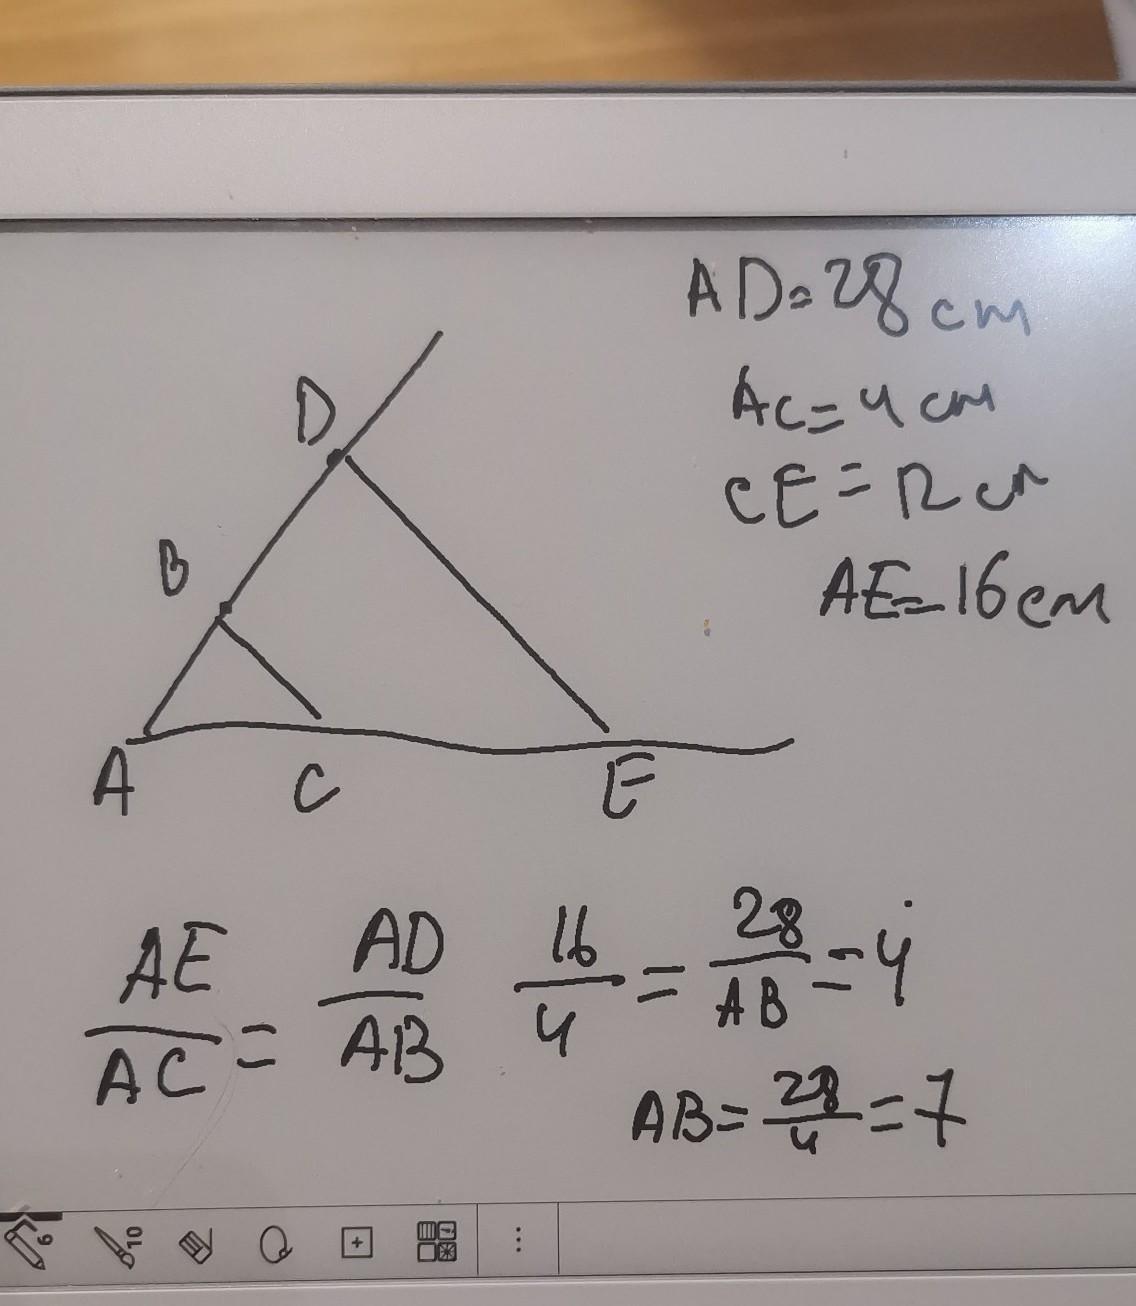 AD=28cm
AC=4cm
CE=12cm
AE=16cm
D
B
A C E
AE/AC = AD/AB 16/4 = 28/AB = 4
AB = 28/4 = 7
6 10